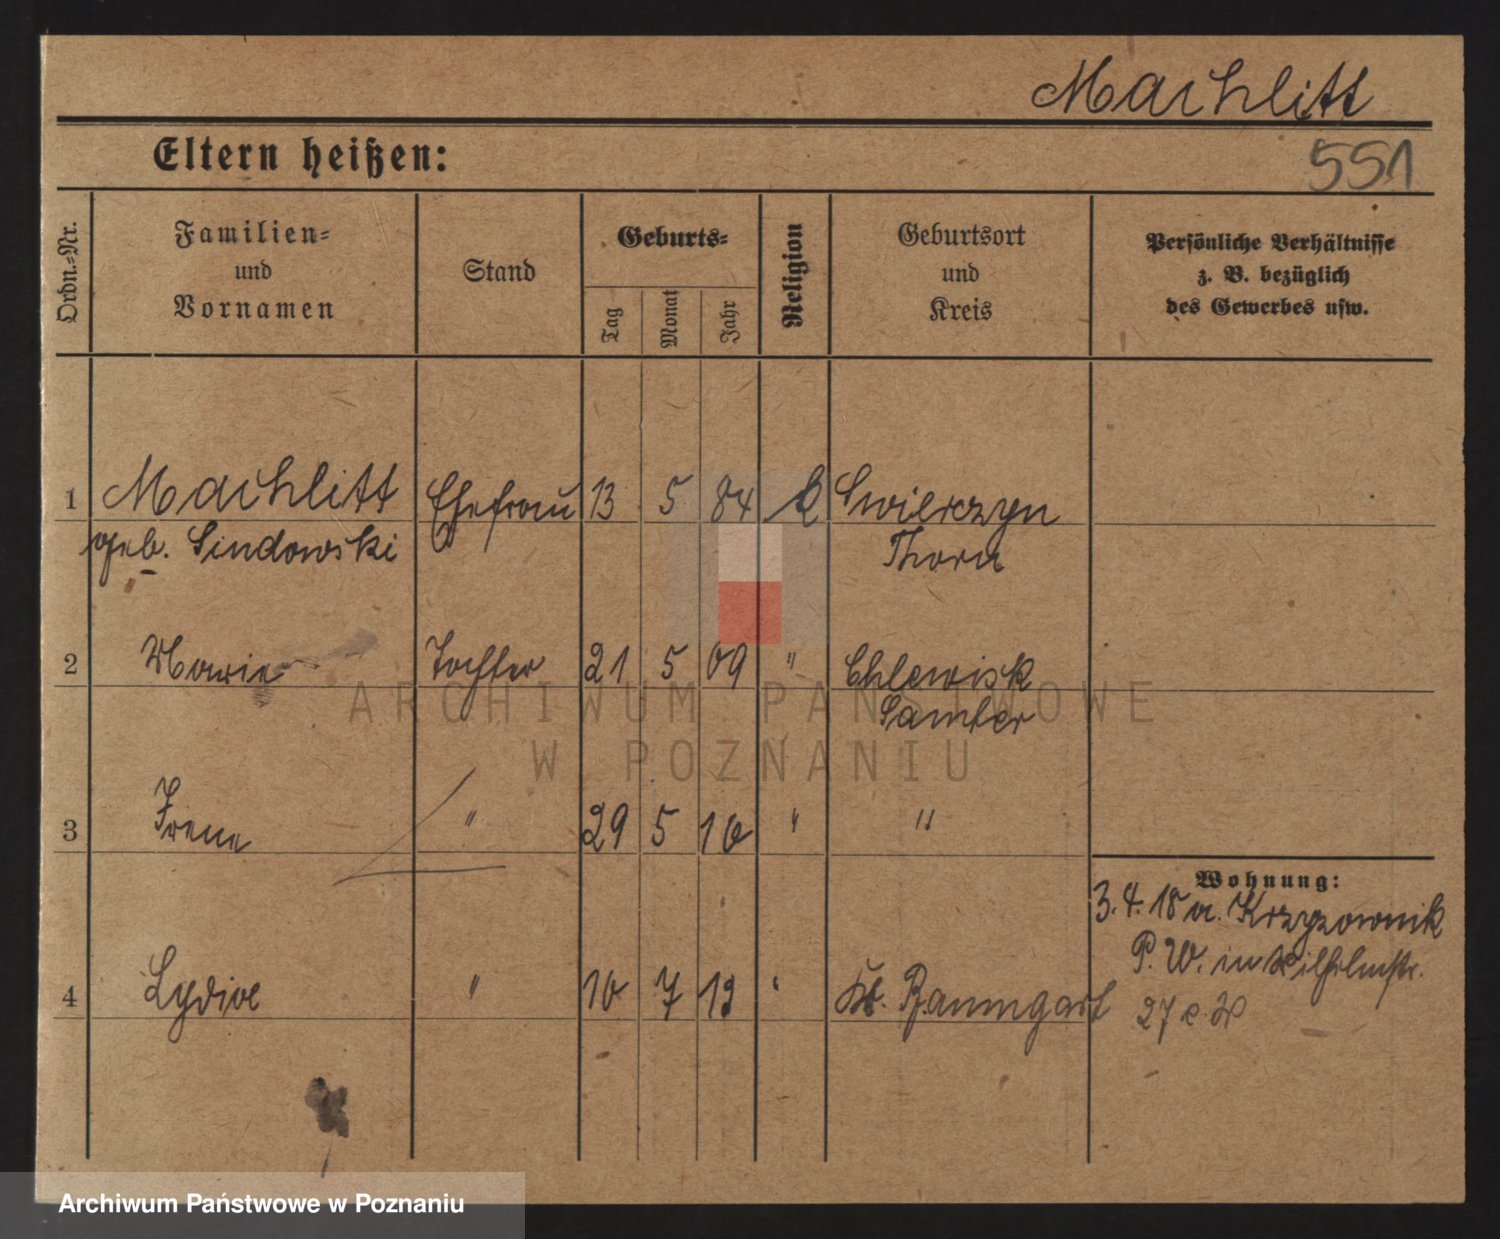 Machlitt
Eltern heißen:
551
Ordn.-Nr.
Familien-
und
Vornamen
Stand
Geburts-
Tag
Monat
Jahr
Religion
Geburtsort
und
Kreis
Persönliche Verhältnisse
z. B. bezüglich
des Gewerbes usw.
1 Machlitt Ehefrau 13 5 84 k Swierczyn
geb. Sindowski Thorn
2 Marie Tochter 21 5 09 " Chlewisk
Samter
3 Irene " 29 5 10 " "
Wohnung:
3. 4. 18 a. Krzyzownik
P. W. in Wilhelmstr.
4 Lydia " 10 7 13 " Baumgart
27
ARCHIWUM PAŃSTWOWE
W POZNANIU
Archiwum Państwowe w Poznaniu